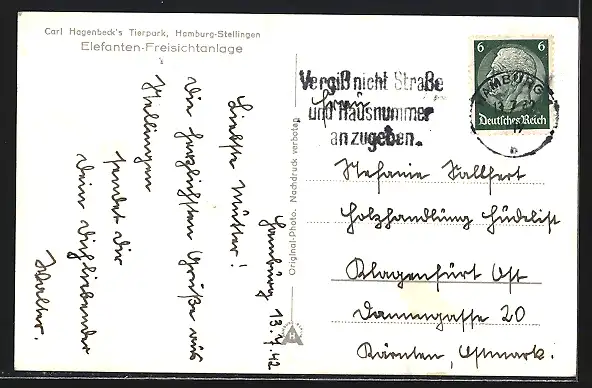 Carl Hagenbeck's Tierpark, Hamburg-Stellingen
Elefanten-Freisichtanlage
Hamburg 13.7.42
Liebste Mutter!
Die herzlichsten Grüße aus
Stellingen
sendet Dir
Dein Dichliebender
Walter.
Original-Photo. Nachdruck verboten
Vergiß nicht Straße
und Hausnummer
anzugeben.
HAMBURG
6 6
Deutsches Reich
Frau
Stefanie
Holzhandlung Hüdelist
Klagenfurt Ost
Dammgasse 20
Kärnten, Ostmark.